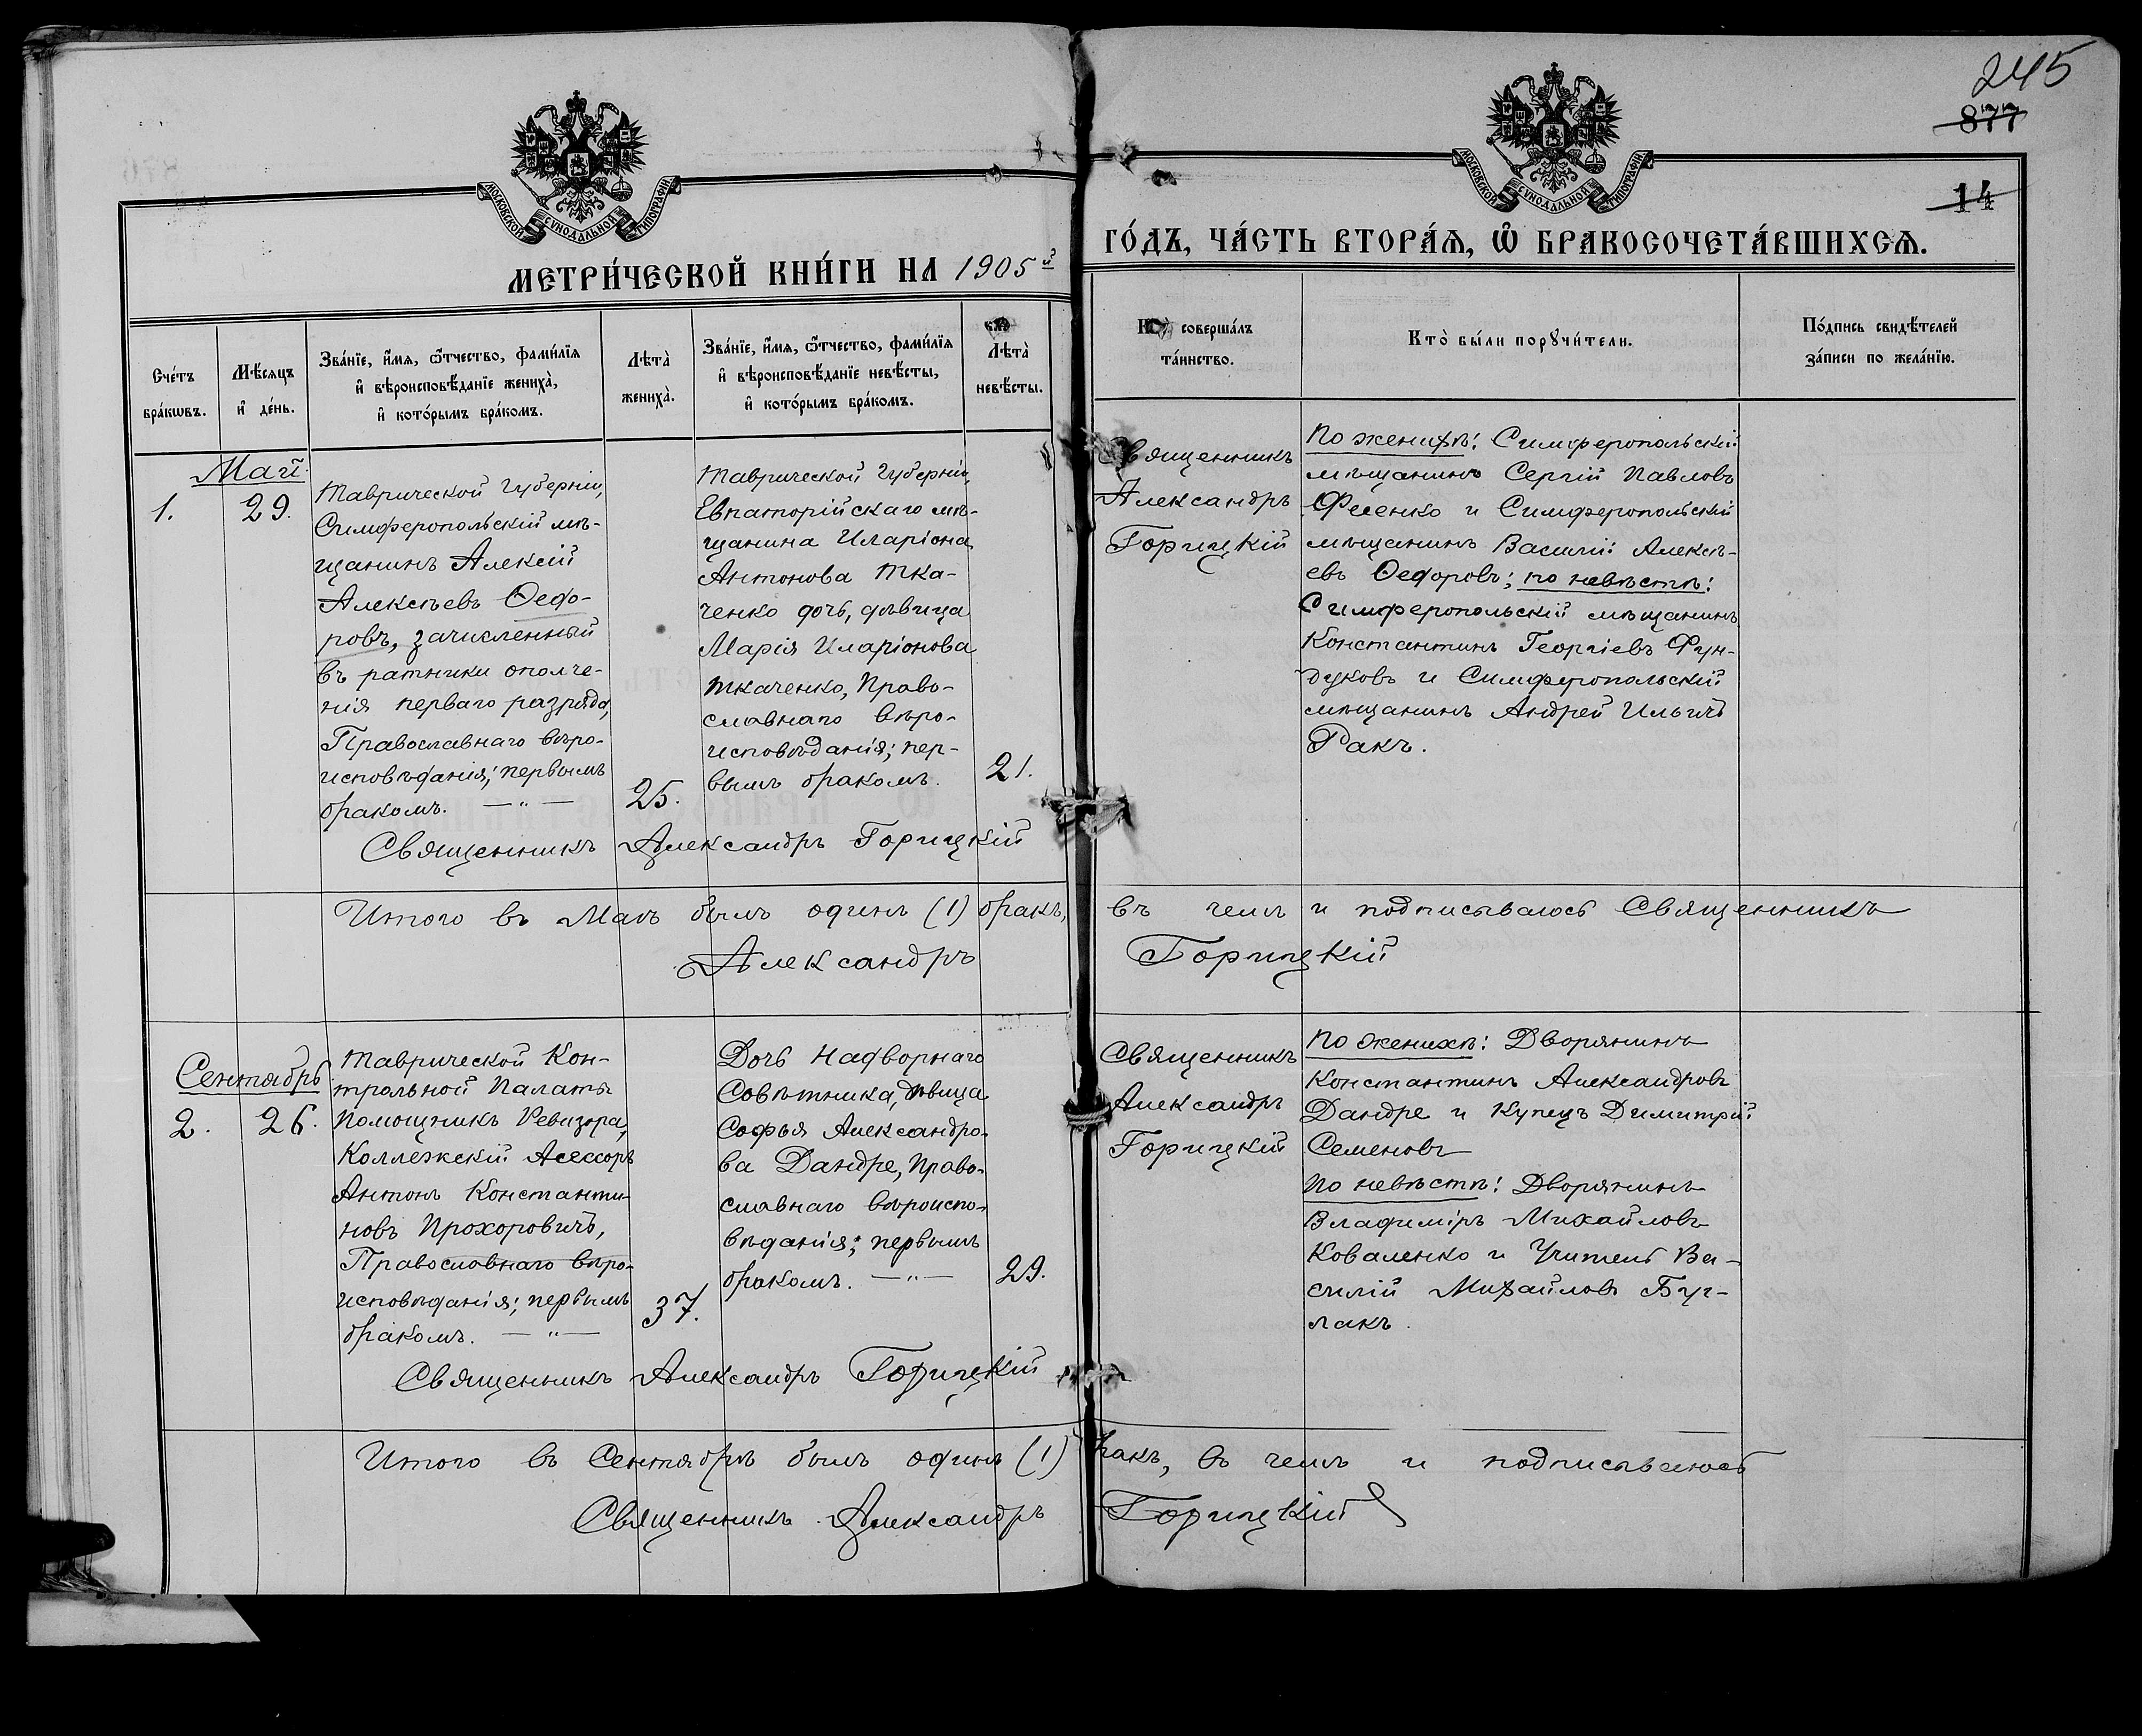 245
877
14
МОСКОВСКОЙ СУНОДАЛЬНОЙ ТИПОГРАФІИ
МОСКОВСКОЙ СУНОДАЛЬНОЙ ТИПОГРАФІИ
МЕТРИ́ЧЕСКОЙ КНИ́ГИ НА 1905й
ГО́ДЪ, ЧА́СТЬ ВТОРА́Я, Ѽ БРАКОСОЧЕТА́ВШИХСЯ.
Сче́тъ
бра́кѡвъ.
Мѣ́сяцъ
и҆ де́нь.
Зва́нїе, и҆́мя, ѻ҆́тчество, фами́лїя
и҆ вѣроисповѣ́данїе жениха̀,
и҆ кото́рымъ бра́комъ.
Лѣта̀
жениха̀.
Зва́нїе, и҆́мя, ѻ҆́тчество, фами́лїя
и҆ вѣроисповѣ́данїе невѣ́сты,
и҆ кото́рымъ бра́комъ.
Лѣта̀
невѣ́сты.
совершáлъ
та́инство.
Кто̀ бы́ли порꙋчи́тели.
По́дпись свидѣ́телей
за́писи по жела́нїю.
Май.
1.
29.
Таврической Губерніи,
Симферопольскій мѣ-
щанинъ Алексій
Алексѣевъ Ѳедо-
ровъ, зачисленный
въ ратники ополче-
нія перваго разряда,
Православнаго вѣро-
исповѣданія; первымъ
бракомъ. — „ —
25.
Таврической Губерніи,
Евпаторійскаго мѣ-
щанина Иларіона
Антонова Тка-
ченко дочь, дѣвица
Марія Иларіонова
Ткаченко, Право-
славнаго вѣро-
исповѣданія; пер-
вымъ бракомъ.
21.
Священникъ Александръ Горицкій
Священникъ
Александръ
Горицкій
По женихѣ: Симферопольскій
мѣщанинъ Сергій Павловъ
Фесенко и Симферопольскій
мѣщанинъ Василій Алексѣ-
евъ Ѳедоровъ; по невѣстѣ:
Симферопольскій мѣщанинъ
Константинъ Георгіевъ Фун-
дуковъ и Симферопольскій
мѣщанинъ Андрей Ильичъ
Ракъ.
Итого въ Маѣ былъ одинъ (1) бракъ, въ чемъ и подписываюсь Священникъ
Александръ Горицкій
Сентябрь
2.
26.
Таврической Кон-
трольной Палаты
Помощникъ Ревизора,
Коллежскій Асессоръ
Антонъ Константи-
новъ Прохоровичъ,
Православнаго вѣро-
исповѣданія; первымъ
бракомъ. — „ —
37.
Дочь Надворнаго
Совѣтника, дѣвица
Софья Александро-
ва Дандре, Право-
славнаго вѣроиспо-
вѣданія; первымъ
бракомъ. — „ —
29.
Священникъ Александръ Горицкій
Священникъ
Александръ
Горицкій
По женихѣ: Дворянинъ
Константинъ Александровъ
Дандре и Купецъ Димитрій
Семеновъ
По невѣстѣ: Дворянинъ
Владиміръ Михайловъ
Коваленко и Учитель Ва-
силій Михайловъ Буг-
лакъ.
Итого въ Сентябрѣ былъ одинъ (1) бракъ, въ чемъ и подписываюсь
Священникъ Александръ Горицкій